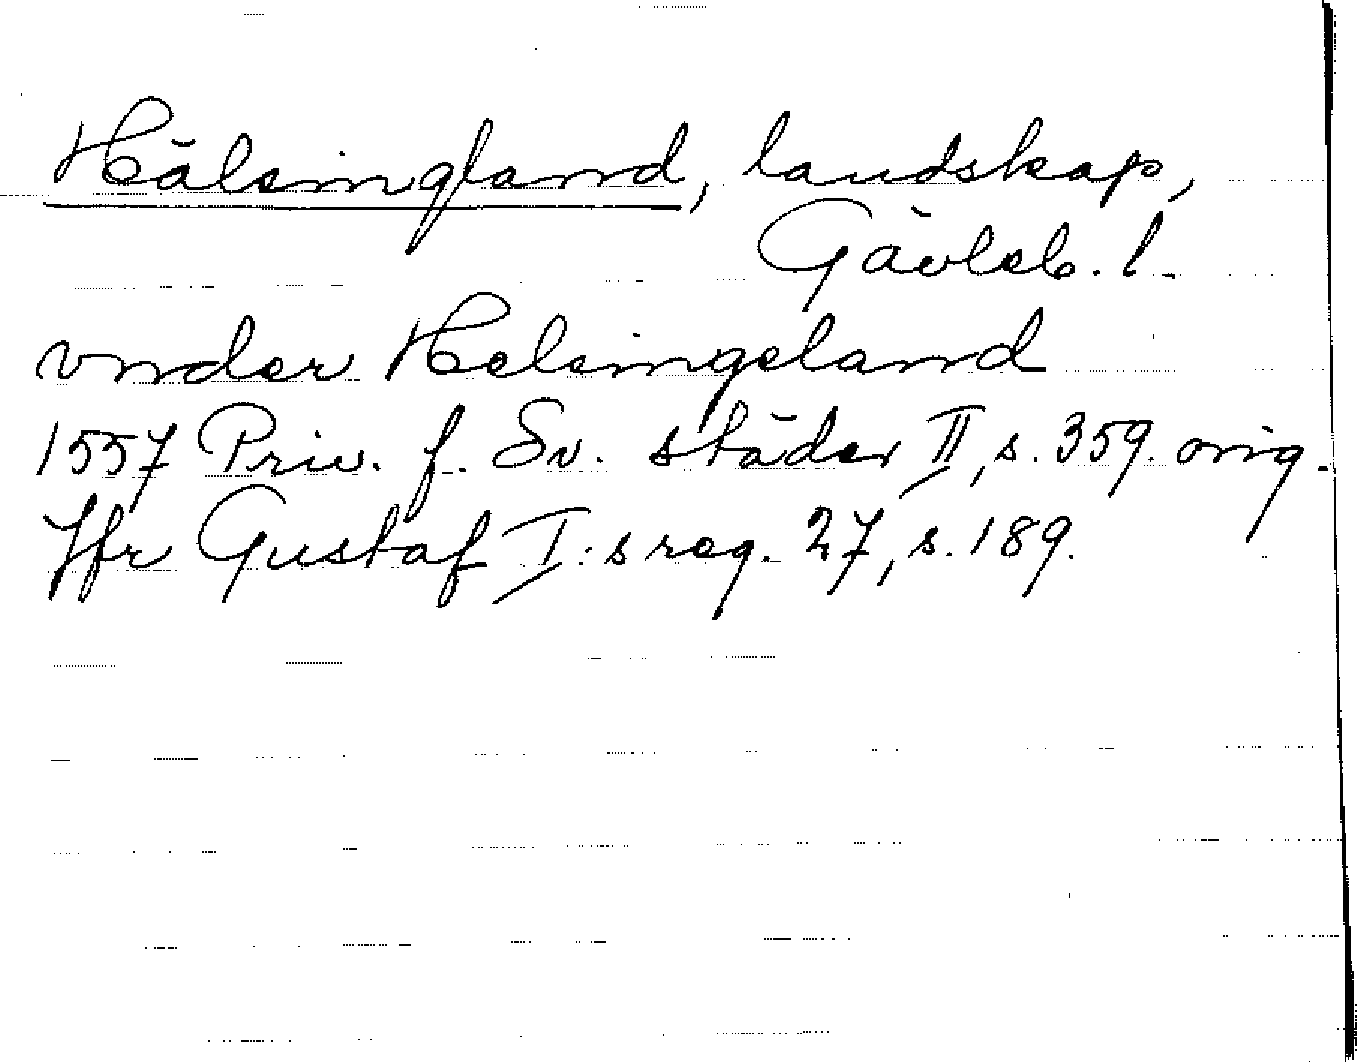 Hälsingland, landskap,
Gävleb. l.
vnder Helsingeland
1557 Priv. f. Sv. städer II, s. 359. orig.
Jfr Gustaf I:s reg. 27, s. 189.